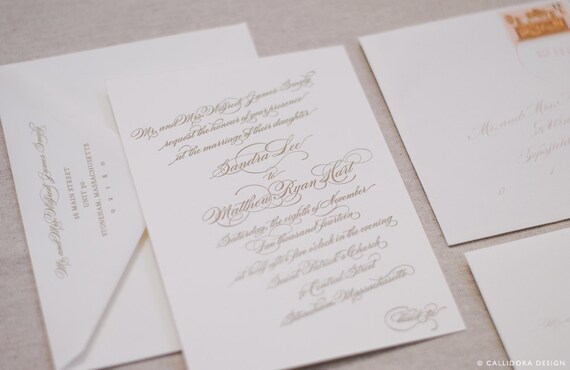 Mr. and Mrs. Wilfred James
request the honour of your presence
at the marriage of their daughter
Sandra Lee
to
Matthew Ryan Hart
Saturday, the eighth of November
Two thousand fourteen
at half after five o'clock in the evening
Saint Patrick's Church
Central Street
Stoneham, Massachusetts
66 MAIN STREET
UNIT 90
STONEHAM, MASSACHUSETTS
02180
Mr. and Mrs.
© CALLIDORA DESIGN